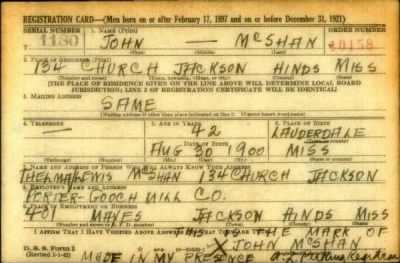 REGISTRATION CARD—(Men born on or after February 17, 1897 and on or before December 31, 1921)
SERIAL NUMBER 1. NAME (Print) ORDER NUMBER
1180 JOHN — McSHAN 10158
(First) (Middle) (Last)
2. PLACE OF RESIDENCE (Print)
134 CHURCH JACKSON HINDS MISS
(Number and street) (Town, township, village, or city) (County) (State)
[THE PLACE OF RESIDENCE GIVEN ON THE LINE ABOVE WILL DETERMINE LOCAL BOARD
JURISDICTION; LINE 2 OF REGISTRATION CERTIFICATE WILL BE IDENTICAL]
3. MAILING ADDRESS
SAME
[Mailing address if other than place indicated on line 2. If same insert word same]
4. TELEPHONE 5. AGE IN YEARS 6. PLACE OF BIRTH
— 42 LAUDERDALE
DATE OF BIRTH (Town or county)
AUG 30 1900 MISS
(Exchange) (Number) (Mo.) (Day) (Yr.) (State or country)
7. NAME AND ADDRESS OF PERSON WHO WILL ALWAYS KNOW YOUR ADDRESS
THELMA LEWIS McSHAN 134 CHURCH JACKSON
8. EMPLOYER'S NAME AND ADDRESS
PORTER-GOOCH MILL CO.
9. PLACE OF EMPLOYMENT OR BUSINESS
401 MAYES JACKSON HINDS MISS
(Number and street or R. F. D. number) (Town) (County) (State)
I AFFIRM THAT I HAVE VERIFIED ABOVE ANSWERS AND THAT THEY ARE TRUE.
THIS IS THE MARK OF
D. S. S. Form 1 X JOHN McSHAN
(Revised 1-1-42) MADE IN MY PRESENCE